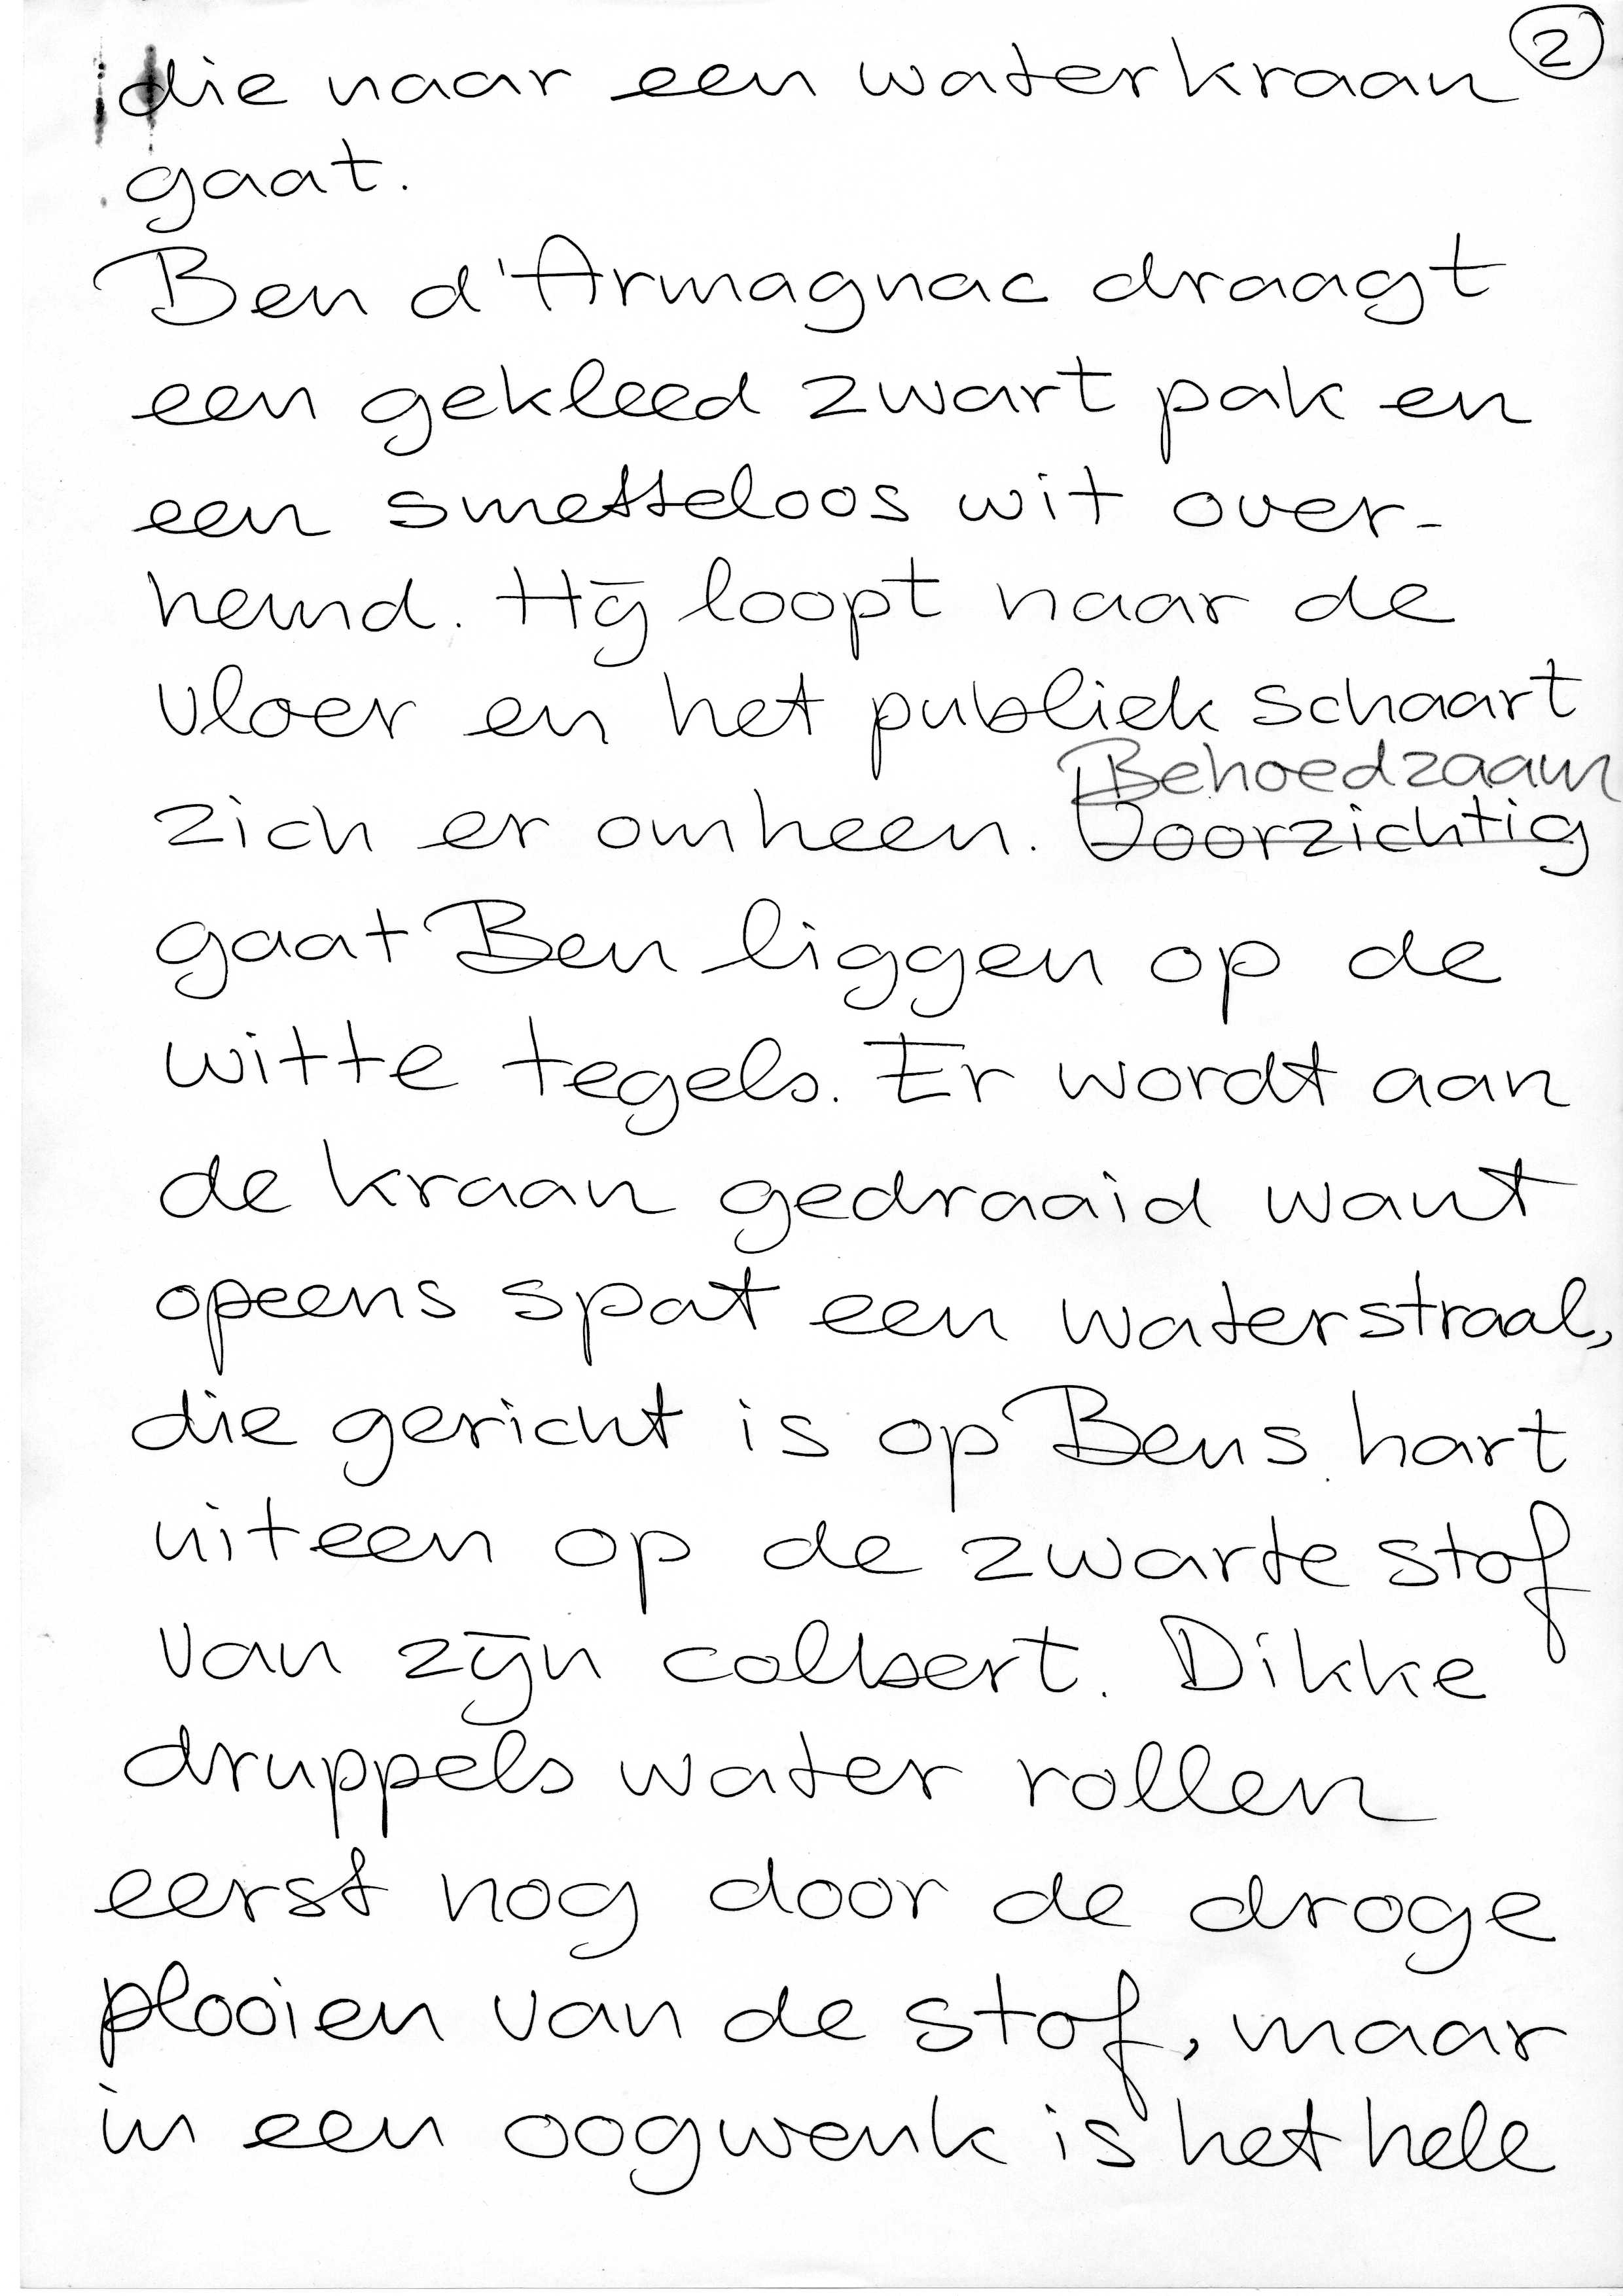 2
die naar een waterkraan
gaat.
Ben d'Armagnac draagt
een gekleed zwart pak en
een smetteloos wit over-
hemd. Hij loopt naar de
vloer en het publiek schaart
Behoedzaam
zich er omheen. Voorzichtig
gaat Ben liggen op de
witte tegels. Er wordt aan
de kraan gedraaid want
opeens spat een waterstraal,
die gericht is op Bens hart
uiteen op de zwarte stof
van zijn colbert. Dikke
druppels water rollen
eerst nog door de droge
plooien van de stof, maar
in een oogwenk is het hele